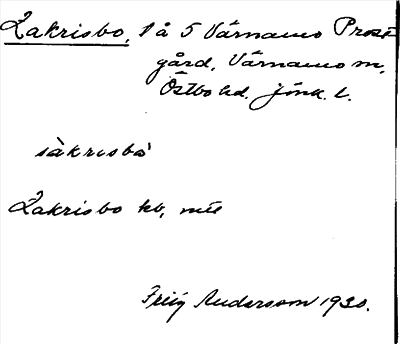 Zakrisbo, 1 å 5 Värnamo Prost
gård, Värnamo sn,
Östbo hd. Jönk. l.
sàkrisbó
Zakrisbo kb,
Andersson 1930.